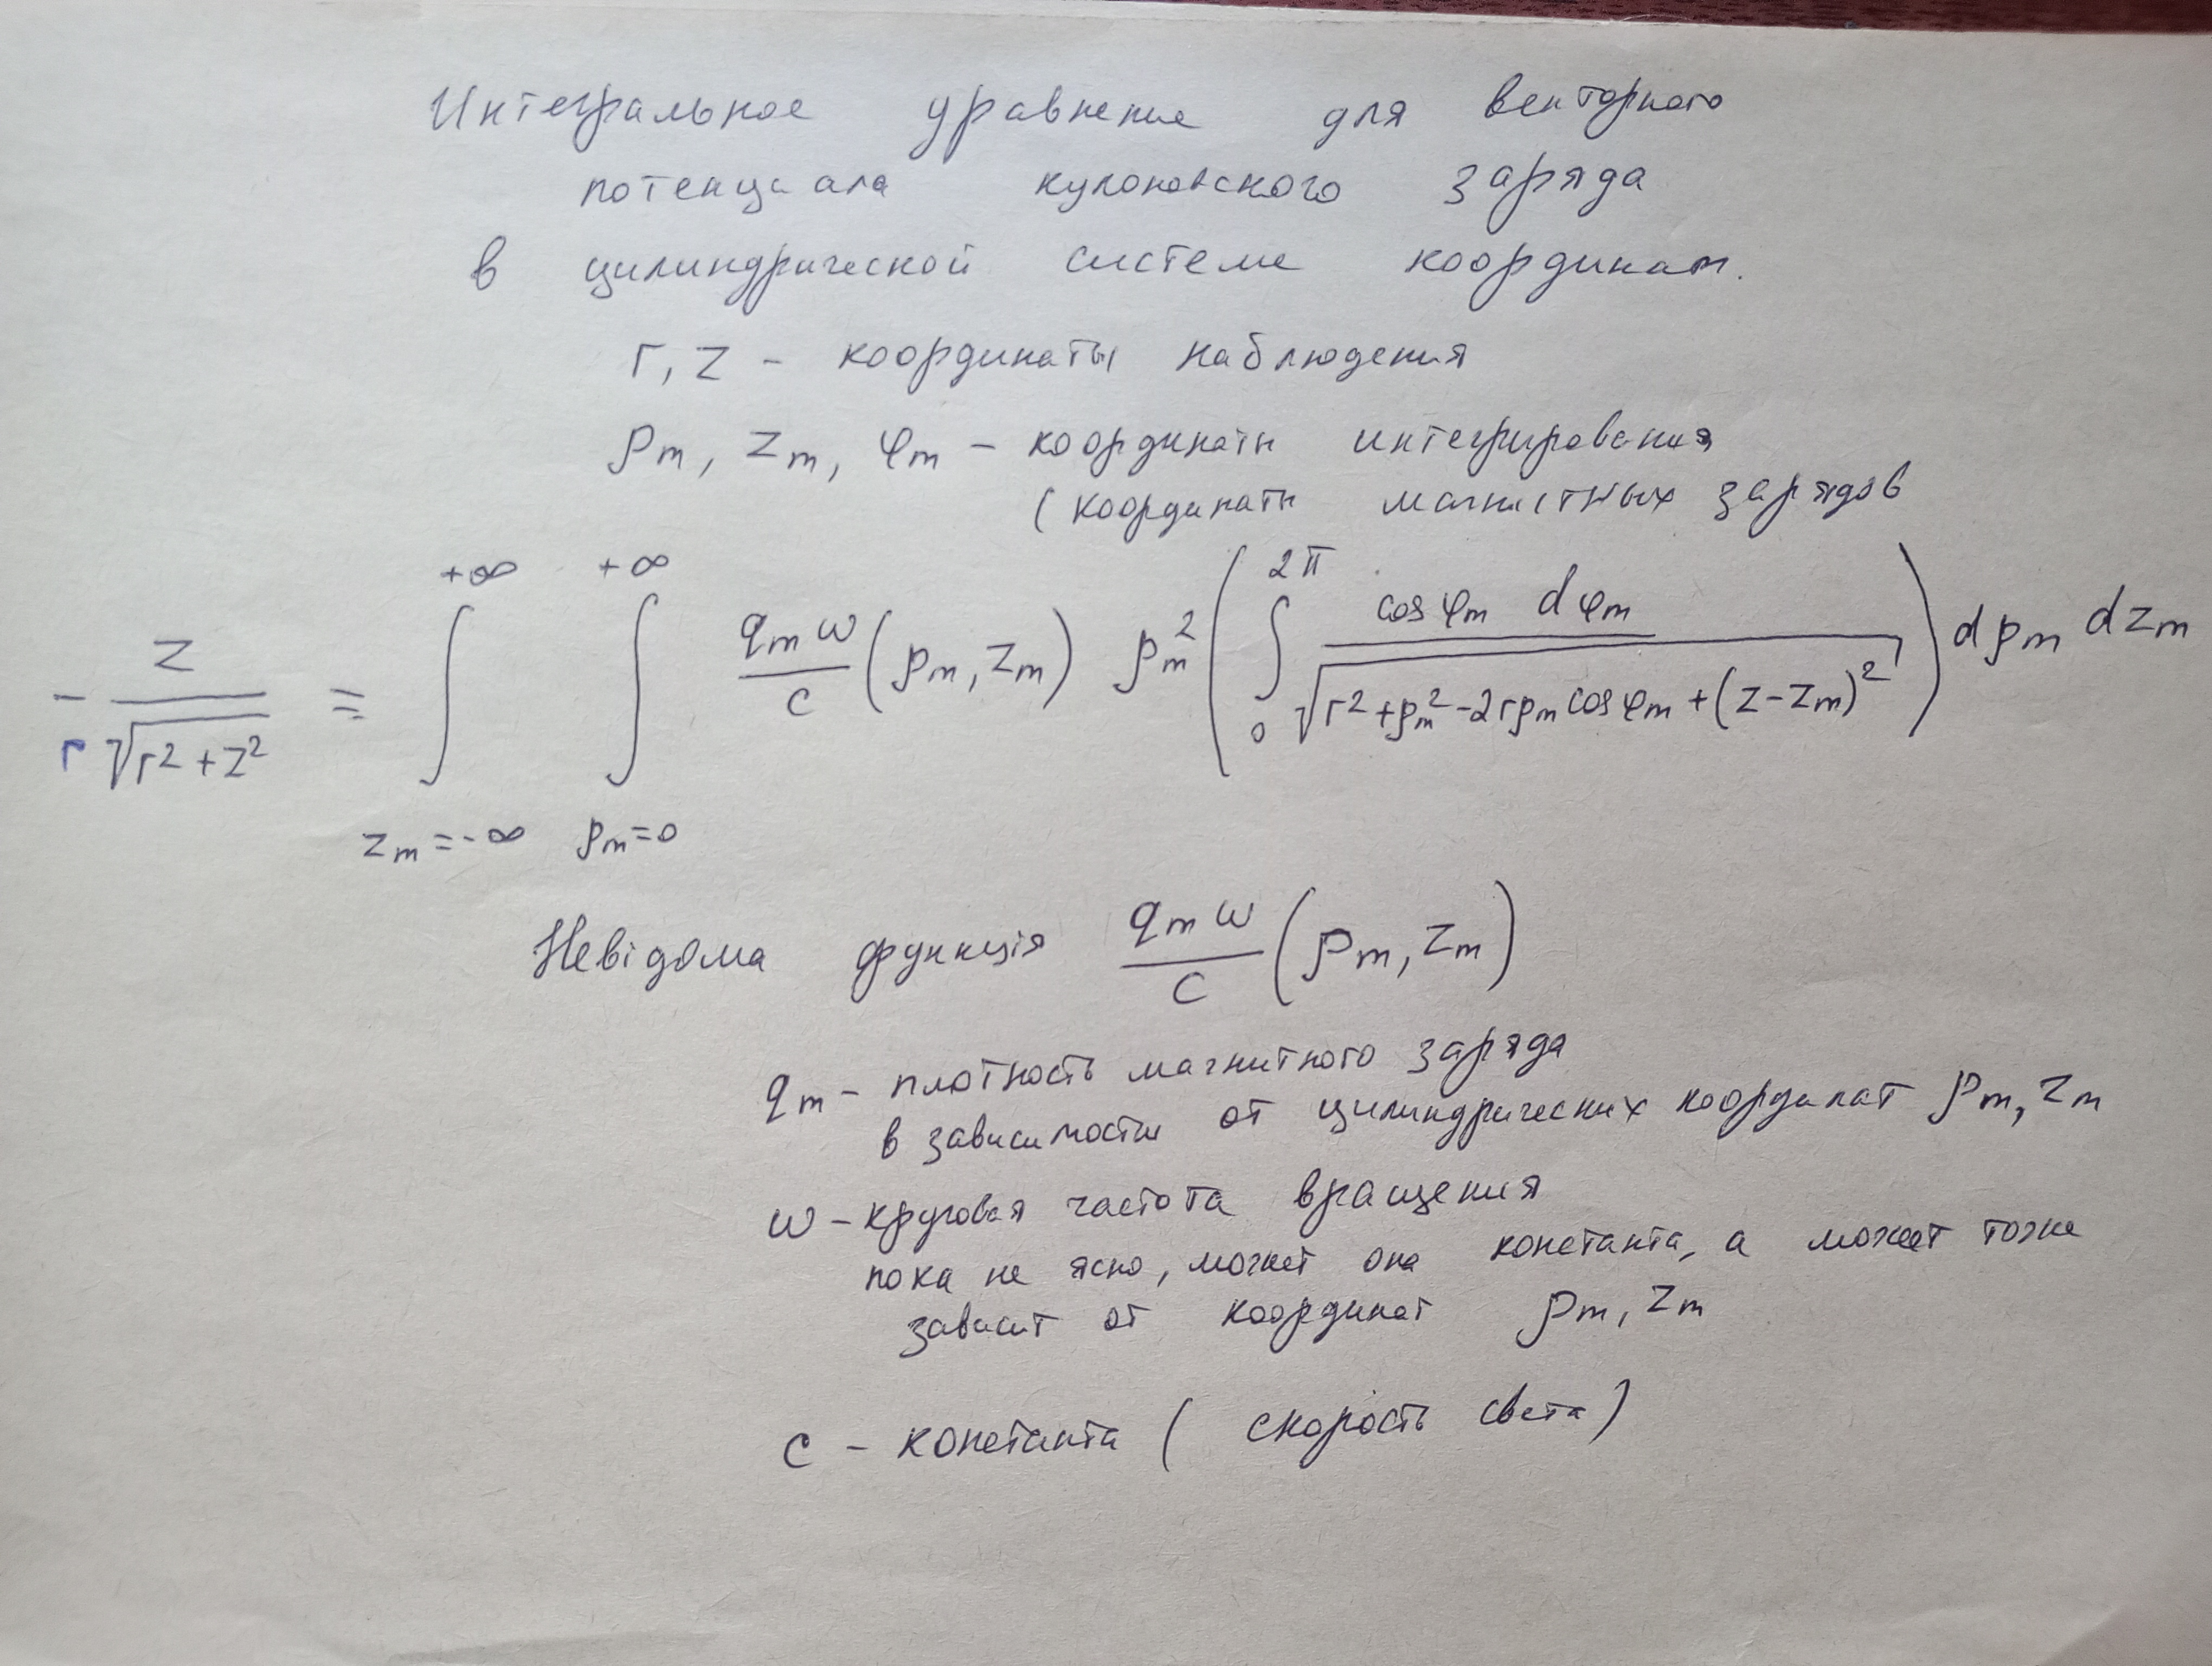 Интегральное уравнение для векторного
потенциала кулоновского заряда
в цилиндрической системе координат.
r, z - координаты наблюдения
ρm, zm, φm - координаты интегрирования
(координаты магнитных зарядов
- z / (r √(r² + z²)) = ∫_{zm=-∞}^{+∞} ∫_{ρm=0}^{+∞} (qm ω / c) (ρm, zm) ρm² ( ∫_0^{2π} cos φm dφm / √(r² + ρm² - 2rρm cos φm + (z - zm)²) ) dρm dzm
Невідома функція (qm ω / c) (ρm, zm)
qm - плотность магнитного заряда
в зависимости от цилиндрических координат ρm, zm
ω - круговая частота вращения
пока не ясно, может она константа, а может тоже
зависит от координат ρm, zm
c - константа (скорость света)